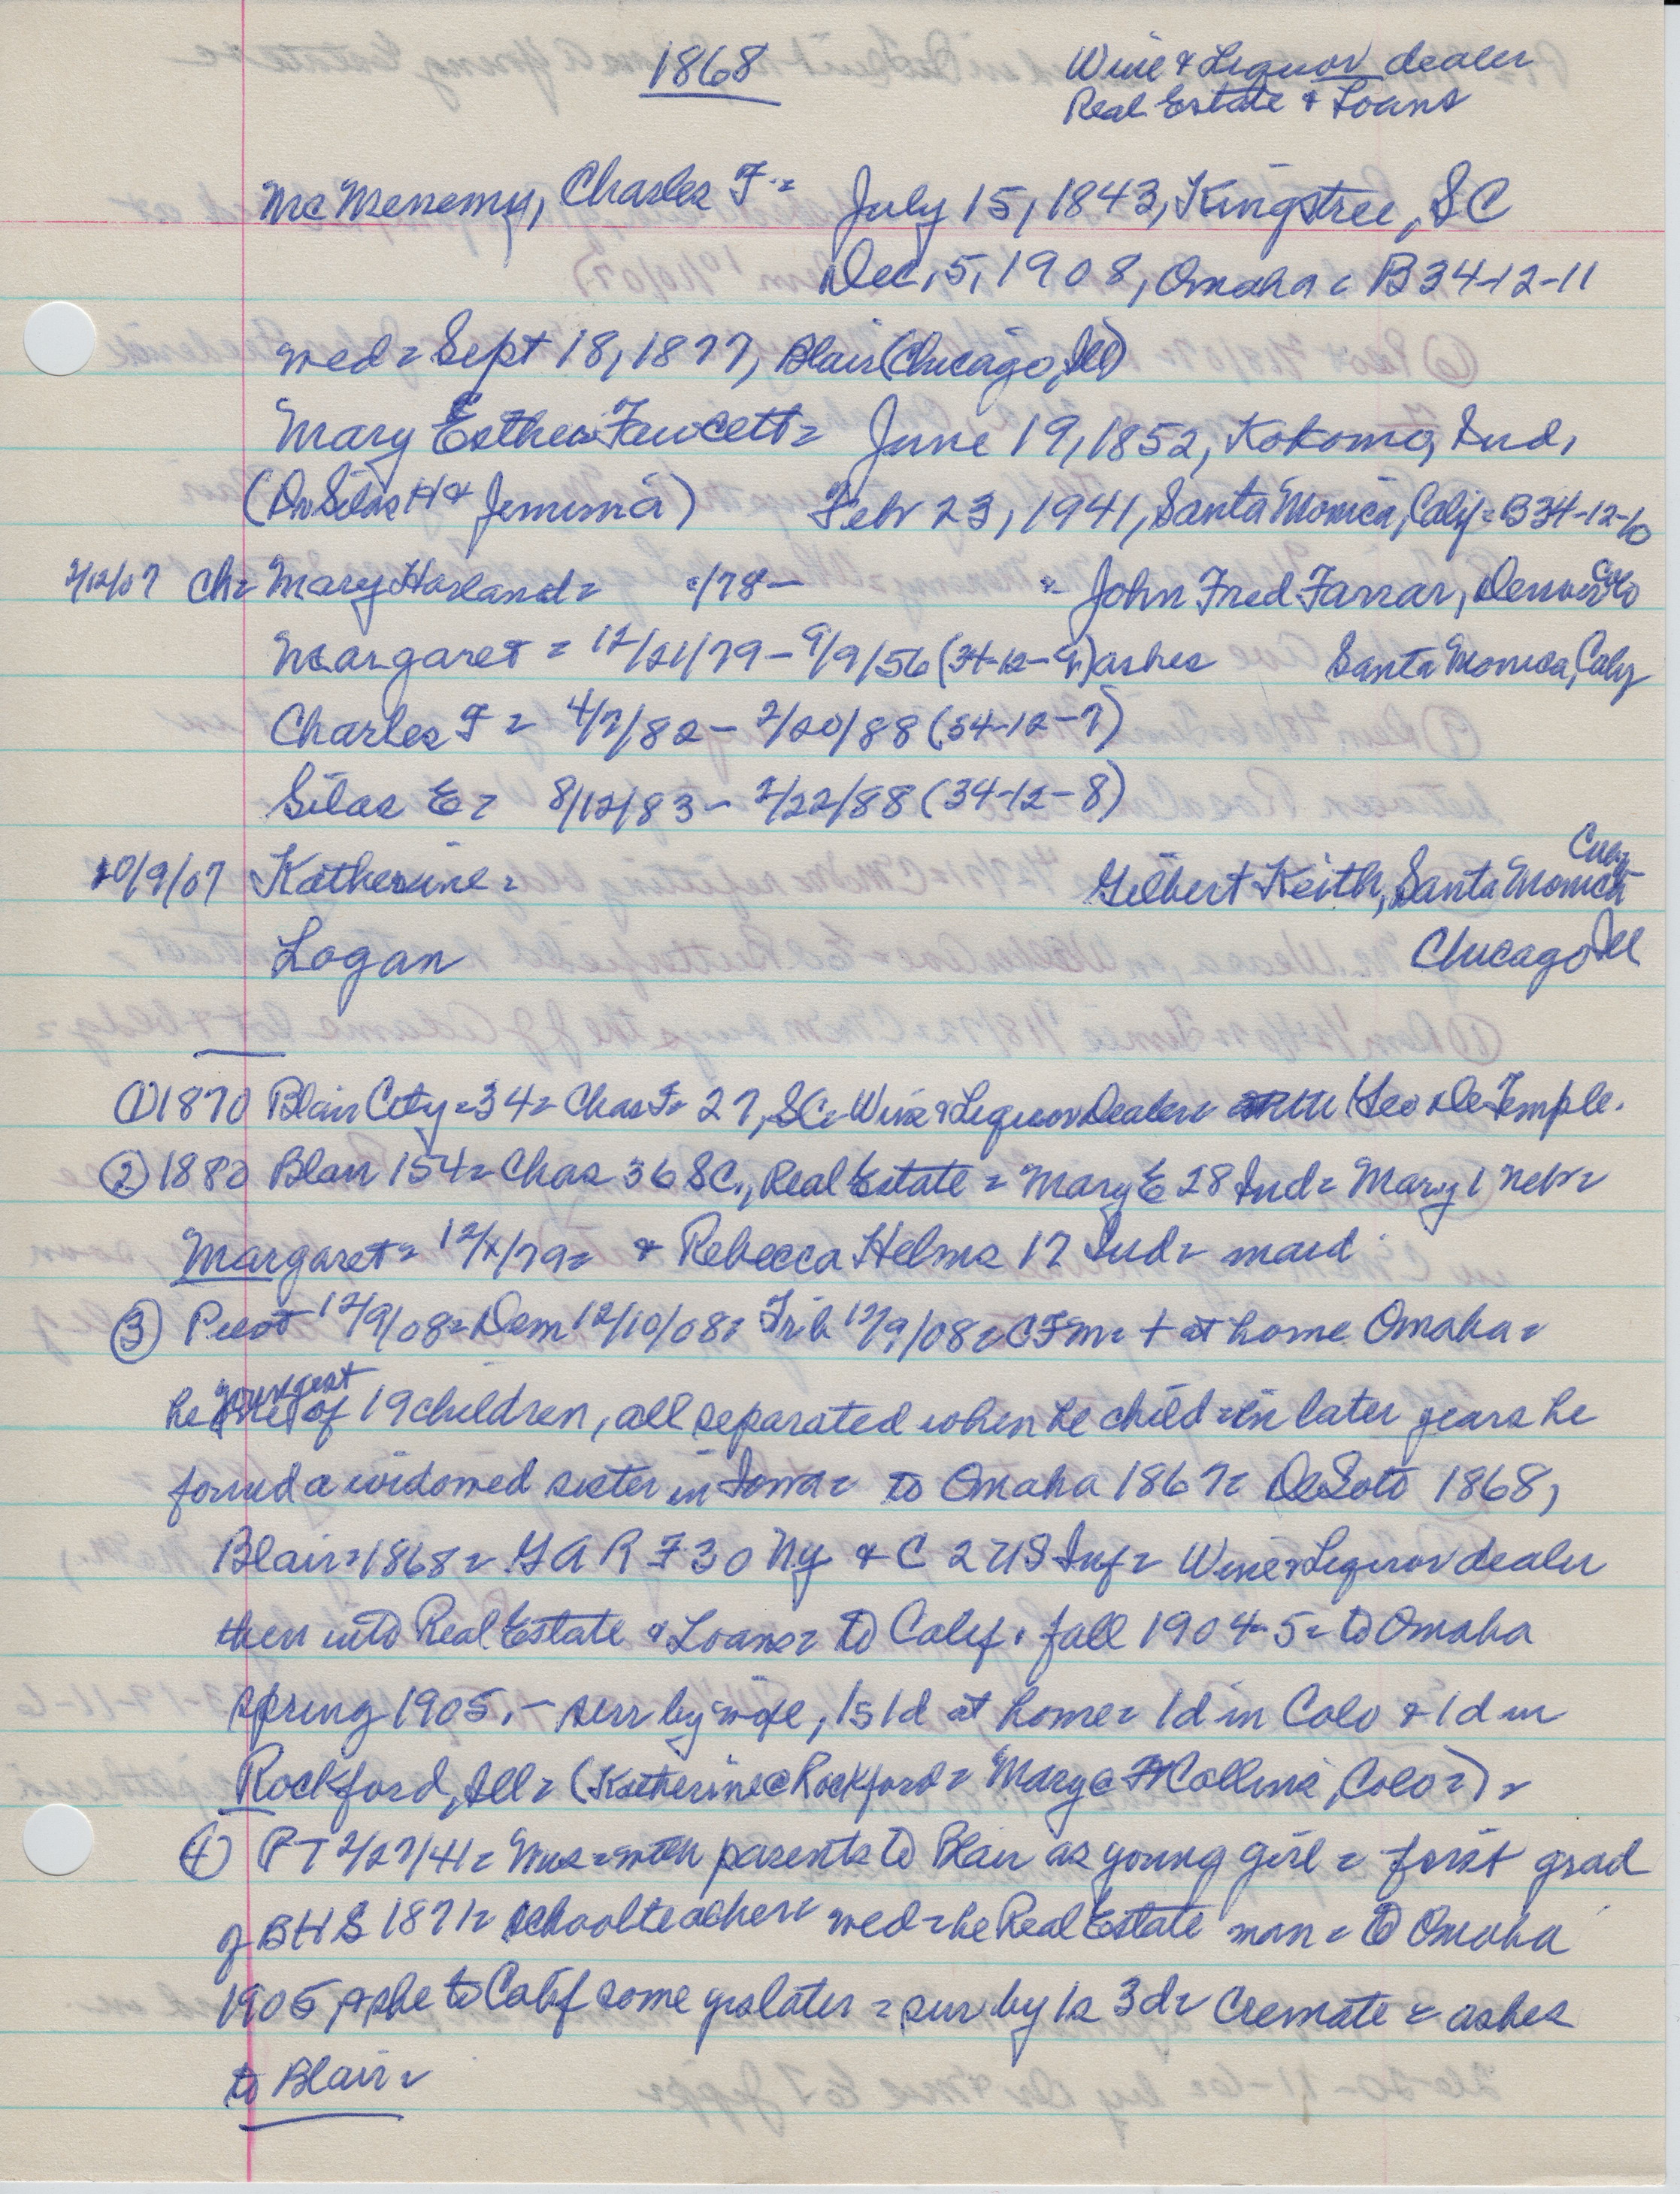 1868
Wine & Liquor dealer
Real Estate & Loans
McMenemy, Charles F = July 15, 1843, Kingstree, SC
Dec, 5, 1908, Omaha = B34-12-11
wed = Sept 18, 1877, Blair (Chicago, Ill)
Mary Esther Fawcett = June 19, 1852, Kokomo, Ind,
(Dr Silas H & Jemima) Febr 23, 1941, Santa Monica, Calif = B34-12-10
2/12/07 Ch = Mary Harland = c/78 - = John Fred Farrar, Denver Colo
Margaret = 12/21/79 - 9/9/56 (34-12-9) ashes Santa Monica, Calif
Charles F = 4/7/82 - 2/20/88 (34-12-7)
Silas E = 8/12/83 - 2/22/88 (34-12-8)
10/9/07 Katherine = Gilbert Keith, Santa Monica
Logan Chicago Ill
① 1870 Blair City = 34 = Chas F = 27, SC = Wine & Liquor Dealer = with Geo DeTemple.
② 1880 Blair 154 = Chas 36 SC., Real Estate = Mary E 28 Ind = Mary 1 Nebr =
Margaret = 12/x/79 = & Rebecca Helms 17 Ind = maid
③ Pilot 12/9/08 = Dem 12/10/08 = Trib 12/9/08 = CFM = + at home Omaha =
he youngest of 19 children, all separated when he child = in later years he
found a widowed sister in Iowa = to Omaha 1867 = DeSoto 1868,
Blair = 1868 = GAR F 30 Ny & C 2 US Inf = Wine & Liquor dealer
then into Real Estate & Loans = to Calif. fall 1904-5 = to Omaha
spring 1905. - surr by wife, 1s 1d at home = 1d in Colo & 1d in
Rockford, Ill = (Katherine @ Rockford = Mary @ Ft Collins, Colo =) =
④ PT 2/27/41 = Mrs = with parents to Blair as young girl = first grad
of BHS 1871 = schoolteacher = wed = he Real Estate man = to Omaha
1905 & she to Calif some yrs later = sur by 1s 3d = Cremate = ashes
to Blair =